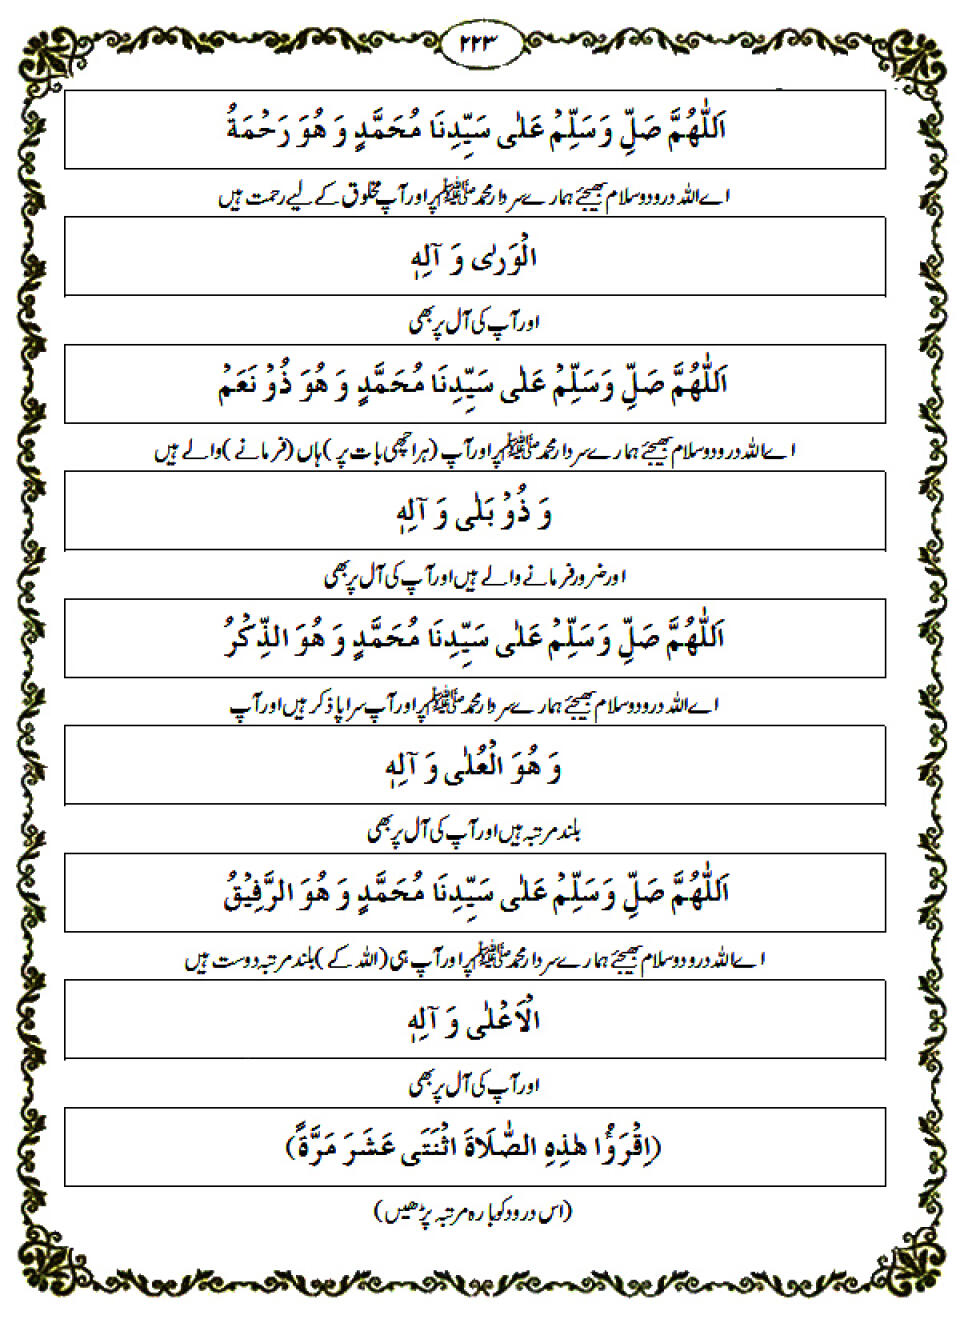 ۲۲۳
اَللّٰهُمَّ صَلِّ وَسَلِّمْ عَلٰی سَيِّدِنَا مُحَمَّدٍ وَ هُوَ رَحْمَةُ
اے اللہ درود وسلام بھیجئے ہمارے سردار محمد ﷺ پر اور آپ مخلوق کے لیے رحمت ہیں
الْوَرٰی وَ آلِهٖ
اور آپ کی آل پر بھی
اَللّٰهُمَّ صَلِّ وَسَلِّمْ عَلٰی سَيِّدِنَا مُحَمَّدٍ وَ هُوَ ذُوْ نَعَمْ
اے اللہ درود وسلام بھیجئے ہمارے سردار محمد ﷺ پر اور آپ (ہر اچھی بات پر) ہاں (فرمانے) والے ہیں
وَ ذُوْ بَلٰی وَ آلِهٖ
اور ضرور فرمانے والے ہیں اور آپ کی آل پر بھی
اَللّٰهُمَّ صَلِّ وَسَلِّمْ عَلٰی سَيِّدِنَا مُحَمَّدٍ وَ هُوَ الذِّكْرُ
اے اللہ درود وسلام بھیجئے ہمارے سردار محمد ﷺ پر اور آپ سراپا ذکر ہیں اور آپ
وَ هُوَ الْعُلٰی وَ آلِهٖ
بلند مرتبہ ہیں اور آپ کی آل پر بھی
اَللّٰهُمَّ صَلِّ وَسَلِّمْ عَلٰی سَيِّدِنَا مُحَمَّدٍ وَ هُوَ الرَّفِيْقُ
اے اللہ درود وسلام بھیجئے ہمارے سردار محمد ﷺ پر اور آپ ہی (اللہ کے) بلند مرتبہ دوست ہیں
الْاَعْلٰی وَ آلِهٖ
اور آپ کی آل پر بھی
(اِقْرَؤُا هٰذِهِ الصَّلَاةَ اثْنَتَی عَشَرَ مَرَّةً)
(اس درود کو بارہ مرتبہ پڑھیں)